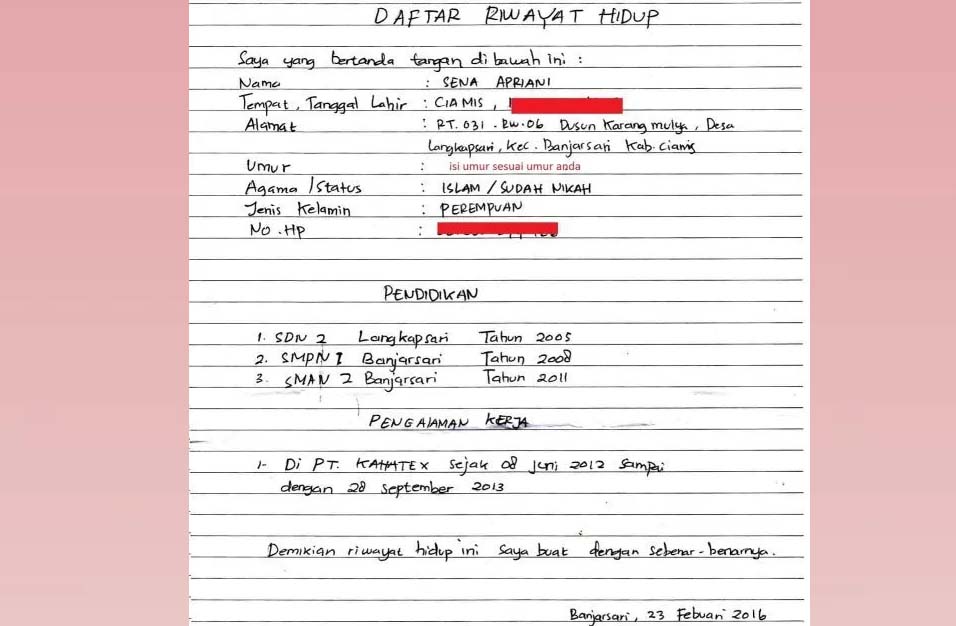 DAFTAR RIWAYAT HIDUP
Saya yang bertanda tangan di bawah ini :
Nama : SENA APRIANI
Tempat, Tanggal Lahir : CIAMIS ,
Alamat : RT. 031 . RW. 06 Dusun Karang mulya, Desa
Langkapsari, Kec. Banjarsari Kab. Ciamis
Umur : isi umur sesuai umur anda
Agama / Status : ISLAM / SUDAH NIKAH
Jenis Kelamin : PEREMPUAN
No . HP :
PENDIDIKAN
1. SDN 2 Langkapsari Tahun 2005
2. SMPN 1 Banjarsari Tahun 2008
3. SMAN 2 Banjarsari Tahun 2011
PENGALAMAN KERJA
1- Di PT. KAHATEX sejak 08 Juni 2012 sampai
dengan 28 September 2013
Demikian riwayat hidup ini saya buat dengan sebenar-benarnya.
Banjarsari, 23 Febuari 2016